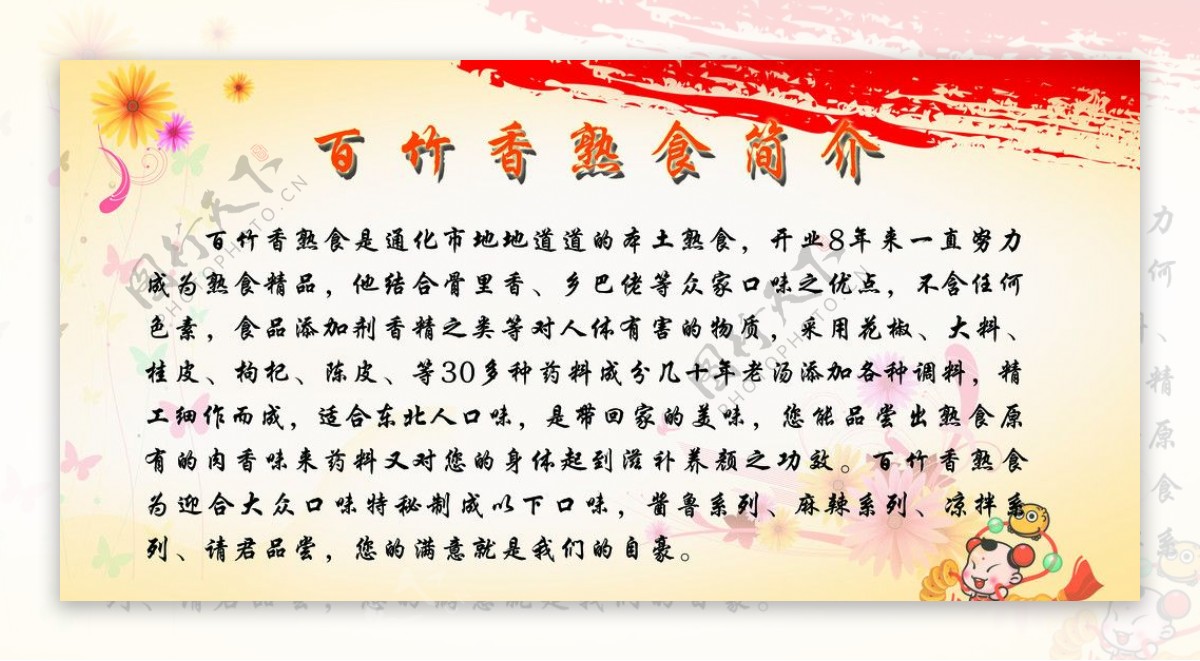 百竹香熟食简介
百竹香熟食是通化市地地道道的本土熟食，开业8年来一直努力
成为熟食精品，他结合骨里香、乡巴佬等众家口味之优点，不含任何
色素，食品添加剂香精之类等对人体有害的物质，采用花椒、大料、
桂皮、枸杞、陈皮、等30多种药料成分几十年老汤添加各种调料，精
工细作而成，适合东北人口味，是带回家的美味，您能品尝出熟食原
有的肉香味来药料又对您的身体起到滋补养颜之功效。百竹香熟食
为迎合大众口味特秘制成以下口味，酱鲁系列、麻辣系列、凉拌系
列、请君品尝，您的满意就是我们的自豪。
图行天下
PHOTOPHOTO.CN
图行天下
PHOTOPHOTO.CN